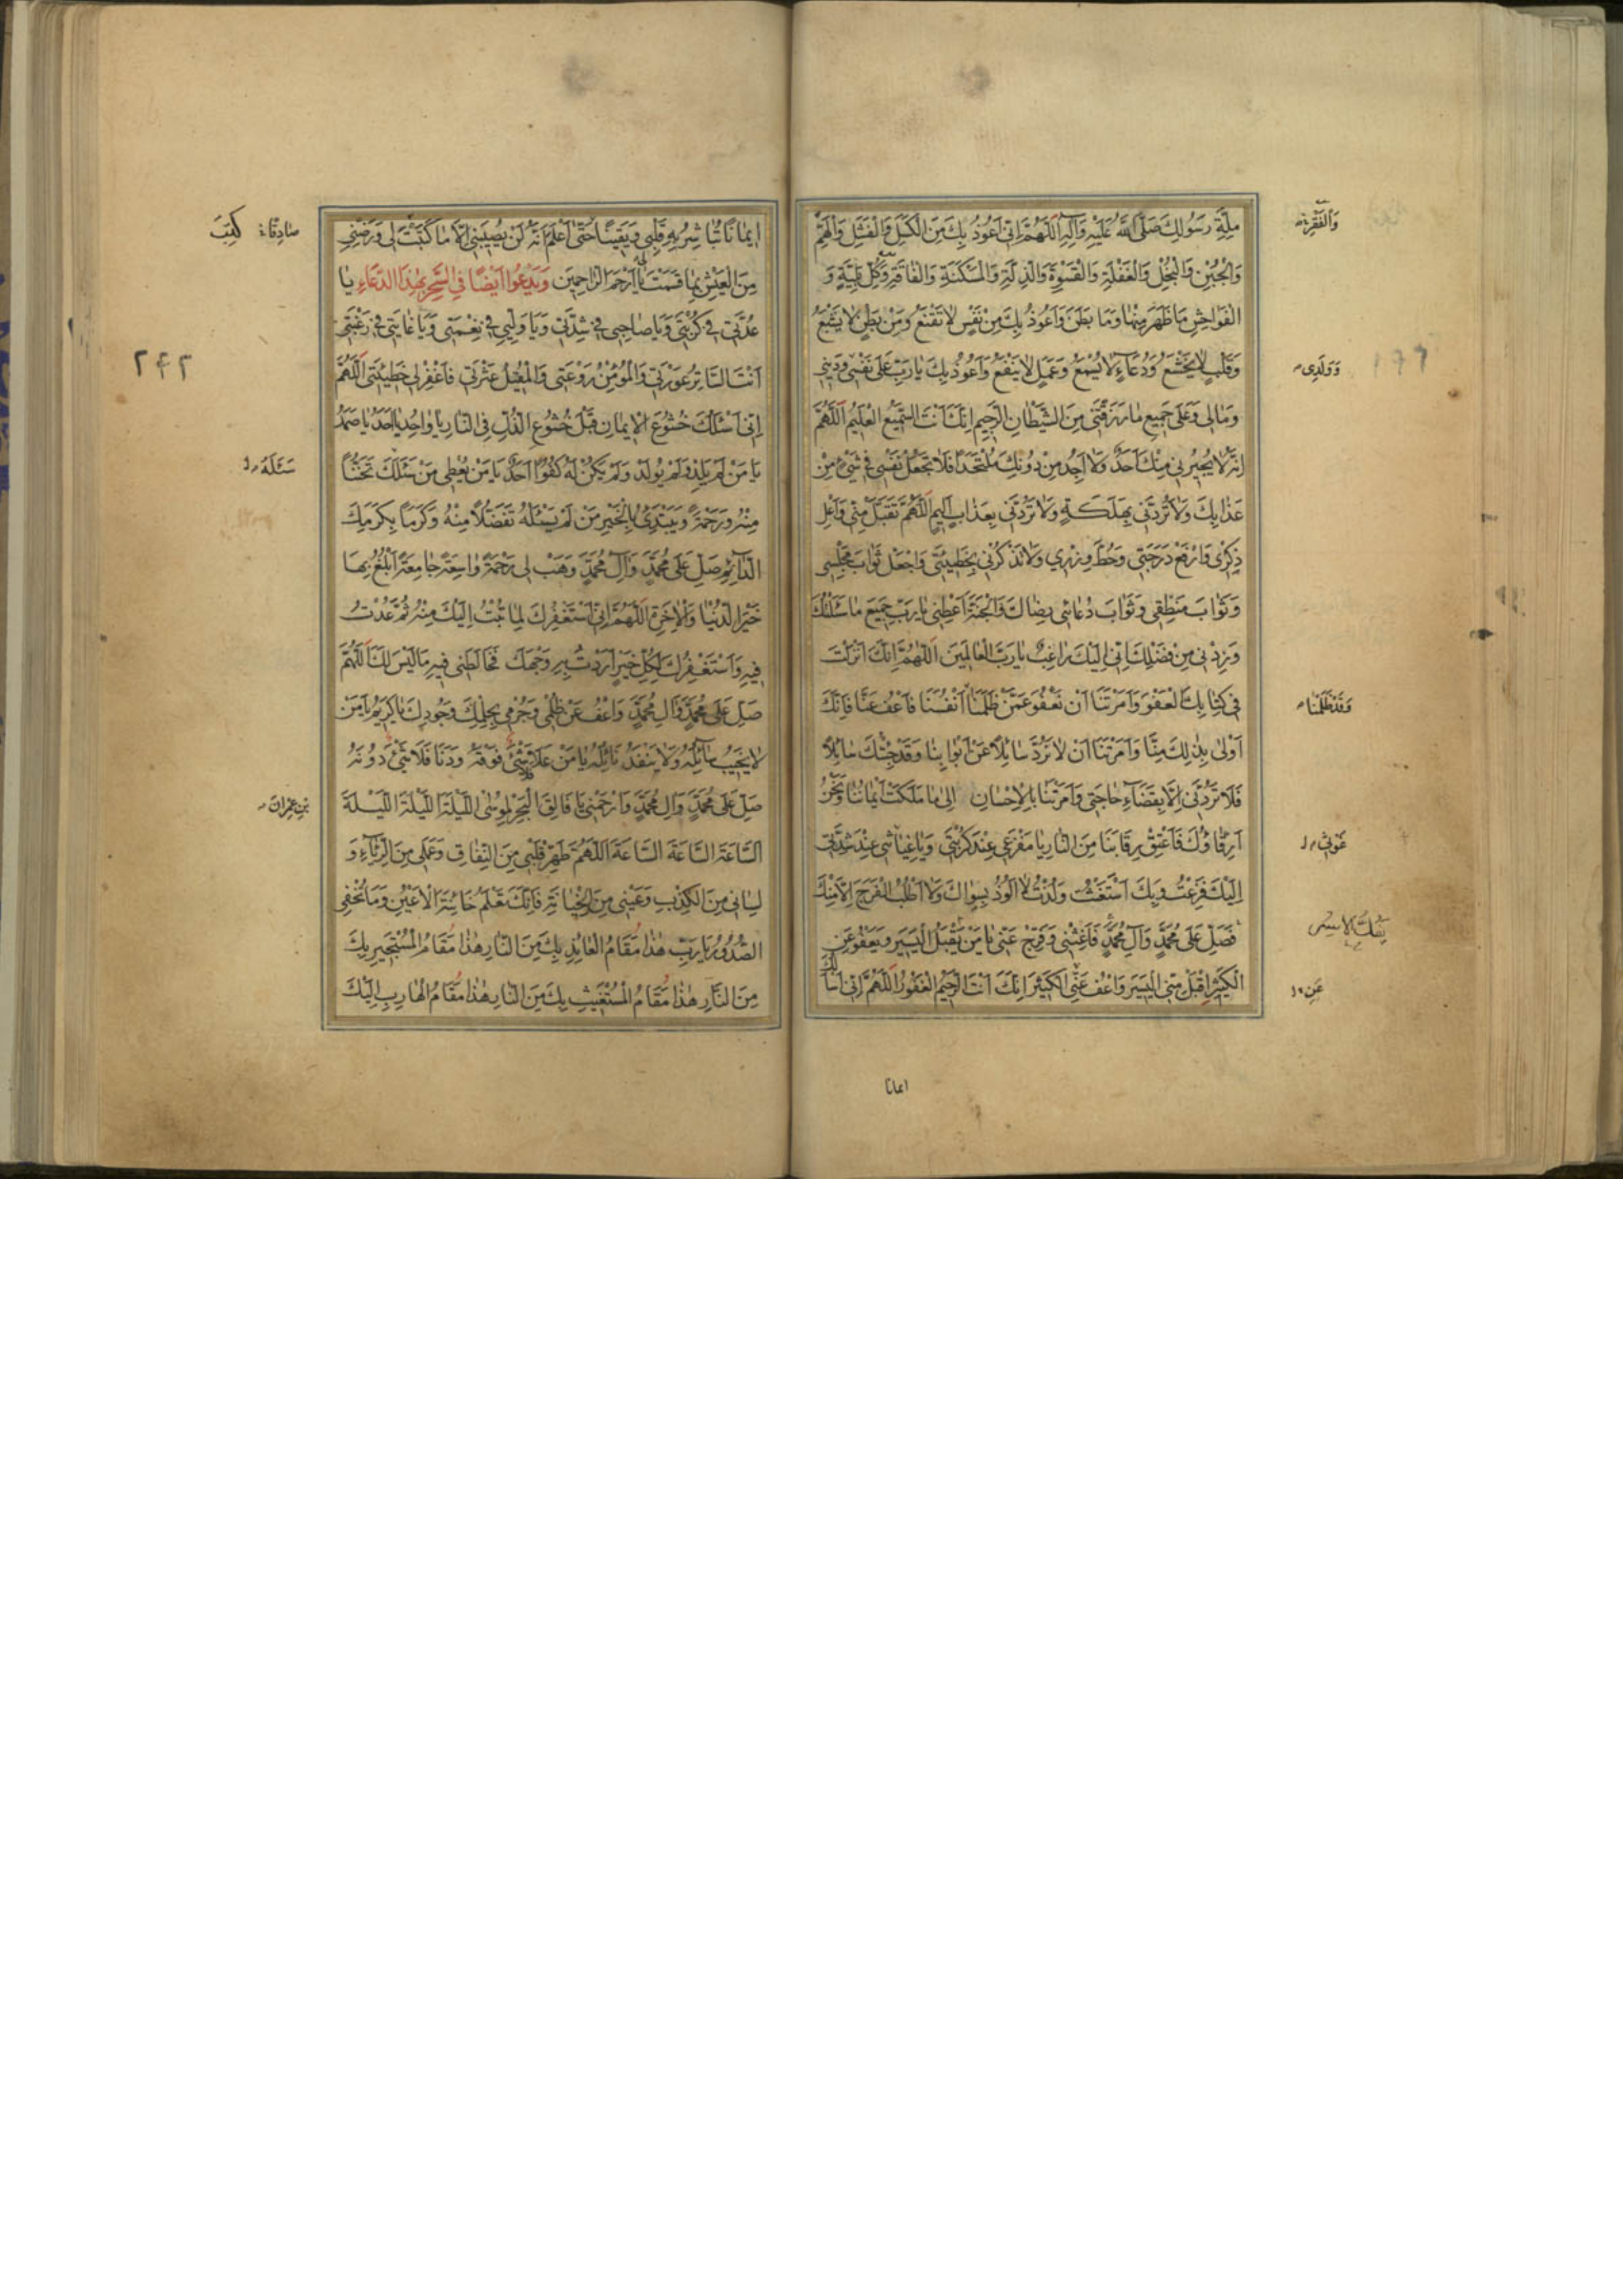 مِلَّةِ رَسُولِكَ صَلَّى اللهُ عَلَيْهِ وَآلِهِ اَللّٰهُمَّ اِنّى اَعُوذُ بِكَ مِنَ الْكَسَلِ وَالْفَشَلِ وَالْهَمِّ
وَالْجُبْنِ وَالْبُخْلِ وَالْغَفْلَةِ وَالْقَسْوَةِ وَالذِّلَّةِ وَالْمَسْكَنَةِ وَالْفاقَةِ وَكُلِّ بَلِيَّةٍ وَ
الْفَواحِشِ مَا ظَهَرَ مِنْها وَمَا بَطَنَ وَاَعُوذُ بِكَ مِنْ نَفْسٍ لا تَقْنَعُ وَمِنْ بَطْنٍ لا يَشْبَعُ
وَقَلْبٍ لا يَخْشَعُ وَدُعاءٍ لا يُسْمَعُ وَعَمَلٍ لا يَنْفَعُ وَاَعُوذُ بِكَ يا رَبِّ عَلى نَفْسى وَدينى
وَمالى وَعَلى جَميعِ ما رَزَقْتَنى مِنَ الشَّيْطانِ الرَّجيمِ اِنَّكَ اَنْتَ السَّميعُ الْعَليمُ اَللّٰهُمَّ
اِنَّهُ لا يُجيرُنى مِنْكَ اَحَدٌ وَلا اَجِدُ مِنْ دُونِكَ مُلْتَحَدًا فَلا تَجْعَلْ نَفْسى فى شَىْءٍ مِنْ
عَذابِكَ وَلا تَرُدَّنى بِهَلَكَةٍ وَلا تَرُدَّنى بِعَذابٍ اَليمٍ اَللّٰهُمَّ تَقَبَّلْ مِنّى وَاَعْلِ
ذِكْرى وَارْفَعْ دَرَجَتى وَحُطَّ وِزْرى وَلا تَذْكُرْنى بِخَطيئَتى وَاجْعَلْ ثَوابَ مَجْلِسى
وَثَوابَ مَنْطِقى وَثَوابَ دُعائى رِضاكَ وَالْجَنَّةَ اَعْطِنى يا رَبِّ جَميعَ ما سَئَلْتُكَ
وَزِدْنى مِنْ فَضْلِكَ اِنّى اِلَيْكَ راغِبٌ يا رَبَّ الْعالَمينَ اَللّٰهُمَّ اِنَّكَ اَنْزَلْتَ
فى كِتابِكَ الْعَفْوَ وَاَمَرْتَنا اَنْ نَعْفُوَ عَمَّنْ ظَلَمَنا اَنْفُسَنا فَاعْفُ عَنّا فَاِنَّكَ
اَوْلى بِذلِكَ مِنّا وَاَمَرْتَنا اَنْ لا نَرُدَّ سائِلًا عَنْ اَبْوابِنا وَقَدْ جِئْتُكَ سائِلًا
فَلا تَرُدَّنى اِلّا بِقَضاءِ حاجَتى وَاَمَرْتَنا بِالْاِحْسانِ اِلى ما مَلَكَتْ اَيْمانُنا وَنَحْنُ
اَرِقّاؤُكَ فَاَعْتِقْ رِقابَنا مِنَ النّارِ يا مَفْزَعى عِنْدَ كُرْبَتى وَيا غِياثى عِنْدَ شِدَّتى
اِلَيْكَ فَزِعْتُ وَبِكَ اسْتَغَثْتُ وَلُذْتُ لا اَلُوذُ بِسِواكَ وَلا اَطْلُبُ الْفَرَجَ اِلّا مِنْكَ
فَصَلِّ عَلى مُحَمَّدٍ وَآلِ مُحَمَّدٍ فَاَغِثْنى وَفَرِّجْ عَنّى يا مَنْ يَقْبَلُ الْيَسيرَ وَيَعْفُو عَنِ
الْكَثيرِ اِقْبَلْ مِنّى الْيَسيرَ وَاعْفُ عَنّى الْكَثيرَ اِنَّكَ اَنْتَ الرَّحيمُ الْغَفُورُ اَللّٰهُمَّ اِنّى اَسْأَلُكَ
ايمانا
وَالْفَقْرِ
وَوَلَدى
وَقَدْ ظَلَمْنا
غَوْثى
عَنِ
ايمانًا تُباشِرُ بِهِ قَلْبى وَيَقينًا حَتّى اَعْلَمَ اَنَّهُ لَنْ يُصيبَنى اِلّا ما كَتَبْتَ لى وَرَضِّنى
مِنَ الْعَيْشِ بِما قَسَمْتَ لى يا اَرْحَمَ الرّاحِمينَ وَيَدْعُوا اَيْضًا فِى السَّحَرِ بِهٰذَا الدُّعَاءِ يا
عُدَّتى فى كُرْبَتى وَيا صاحِبى فى شِدَّتى وَيا وَلِيّى فى نِعْمَتى وَيا غايَتى فى رَغْبَتى
اَنْتَ السّاتِرُ عَوْرَتى وَالْمُؤْمِنُ رَوْعَتى وَالْمُقيلُ عَثْرَتى فَاغْفِرْ لى خَطيئَتى اَللّٰهُمَّ
اِنّى اَسْئَلُكَ خُشُوعَ الْايمانِ قَبْلَ خُشُوعِ الذُّلِّ فِى النّارِ يا واحِدُ يا اَحَدُ يا صَمَدُ
يا مَنْ لَمْ يَلِدْ وَلَمْ يُولَدْ وَلَمْ يَكُنْ لَهُ كُفُوًا اَحَدٌ يا مَنْ يُعْطى مَنْ سَئَلَكَ تَحَنُّنًا
مِنْهُ وَرَحْمَةً وَيَبْتَدِئُ بِالْخَيْرِ مَنْ لَمْ يَسْئَلْهُ تَفَضُّلًا مِنْهُ وَكَرَمًا بِكَرَمِكَ
الدّائِمِ صَلِّ عَلى مُحَمَّدٍ وَآلِ مُحَمَّدٍ وَهَبْ لى رَحْمَةً واسِعَةً جامِعَةً اَبْلُغُ بِها
خَيْرَ الدُّنْيا وَالْاٰخِرَةِ اَللّٰهُمَّ اِنّى اَسْتَغْفِرُكَ لِما تُبْتُ اِلَيْكَ مِنْهُ ثُمَّ عُدْتُ
فيهِ وَاَسْتَغْفِرُكَ لِكُلِّ خَيْرٍ اَرَدْتُ بِهِ وَجْهَكَ فَخالَطَنى فيهِ ما لَيْسَ لَكَ اَللّٰهُمَّ
صَلِّ عَلى مُحَمَّدٍ وَآلِ مُحَمَّدٍ وَاعْفُ عَنْ ظُلْمى وَجُرْمى بِحِلْمِكَ وَجُودِكَ يا كَريمُ يا مَنْ
لا يَخيبُ سآئِلُهُ وَلا يَنْفَدُ نائِلُهُ يا مَنْ عَلا فَلا شَىْءَ فَوْقَهُ وَدَنا فَلا شَىْءَ دُونَهُ
صَلِّ عَلى مُحَمَّدٍ وَآلِ مُحَمَّدٍ وَارْحَمْنى يا فالِقَ الْبَحْرِ لِمُوسى اَللَّيْلَةَ اللَّيْلَةَ اللَّيْلَةَ
اَلسّاعَةَ السّاعَةَ السّاعَةَ اَللّٰهُمَّ طَهِّرْ قَلْبى مِنَ النِّفاقِ وَعَمَلى مِنَ الرِّياءِ وَ
لِسانى مِنَ الْكِذْبِ وَعَيْنى مِنَ الْخِيانَةِ فَاِنَّكَ تَعْلَمُ خائِنَةَ الْاَعْيُنِ وَما تُخْفِى
الصُّدُورُ يا رَبِّ هٰذا مَقامُ الْعائِذِ بِكَ مِنَ النّارِ هٰذا مَقامُ الْمُسْتَجيرِ بِكَ
مِنَ النّارِ هٰذا مَقامُ الْمُسْتَغيثِ بِكَ مِنَ النّارِ هٰذا مَقامُ الْهارِبِ اِلَيْكَ
صادِقًا
كَتَبَ
۲۴۲
سَئَلَهُ
بْنِ عِمْرانَ